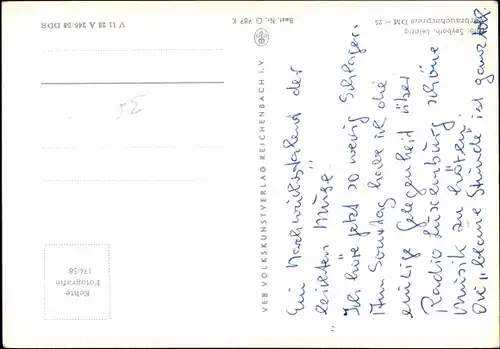 V 11 28 A 245/58 DDR
Best.-Nr. G 787 K
Foto: Seyboth, Leipzig
Verbraucherpreis DM —.25
VEB VOLKSKUNSTVERLAG REICHENBACH I. V.
Echte
Fotografie
174/58
5E
Ein Nachwuchsstar der
leichten Muse.
Ich höre jetzt so wenig Schlager.
Nur Sonntag habe ich die
einzige Gelegenheit über
Radio Luxemburg schöne
Musik zu hören.
Die "blaue Stunde" ist ganz toll.